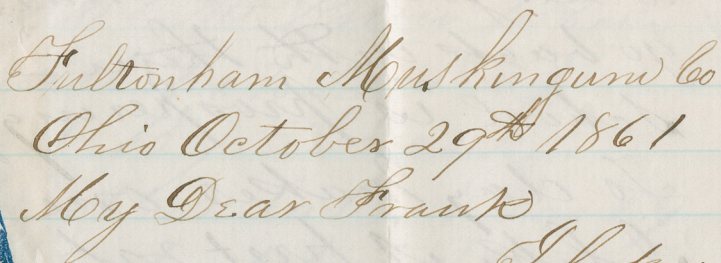 Fultonham Muskingum Co
Ohio October 29th 1861
My Dear Frank